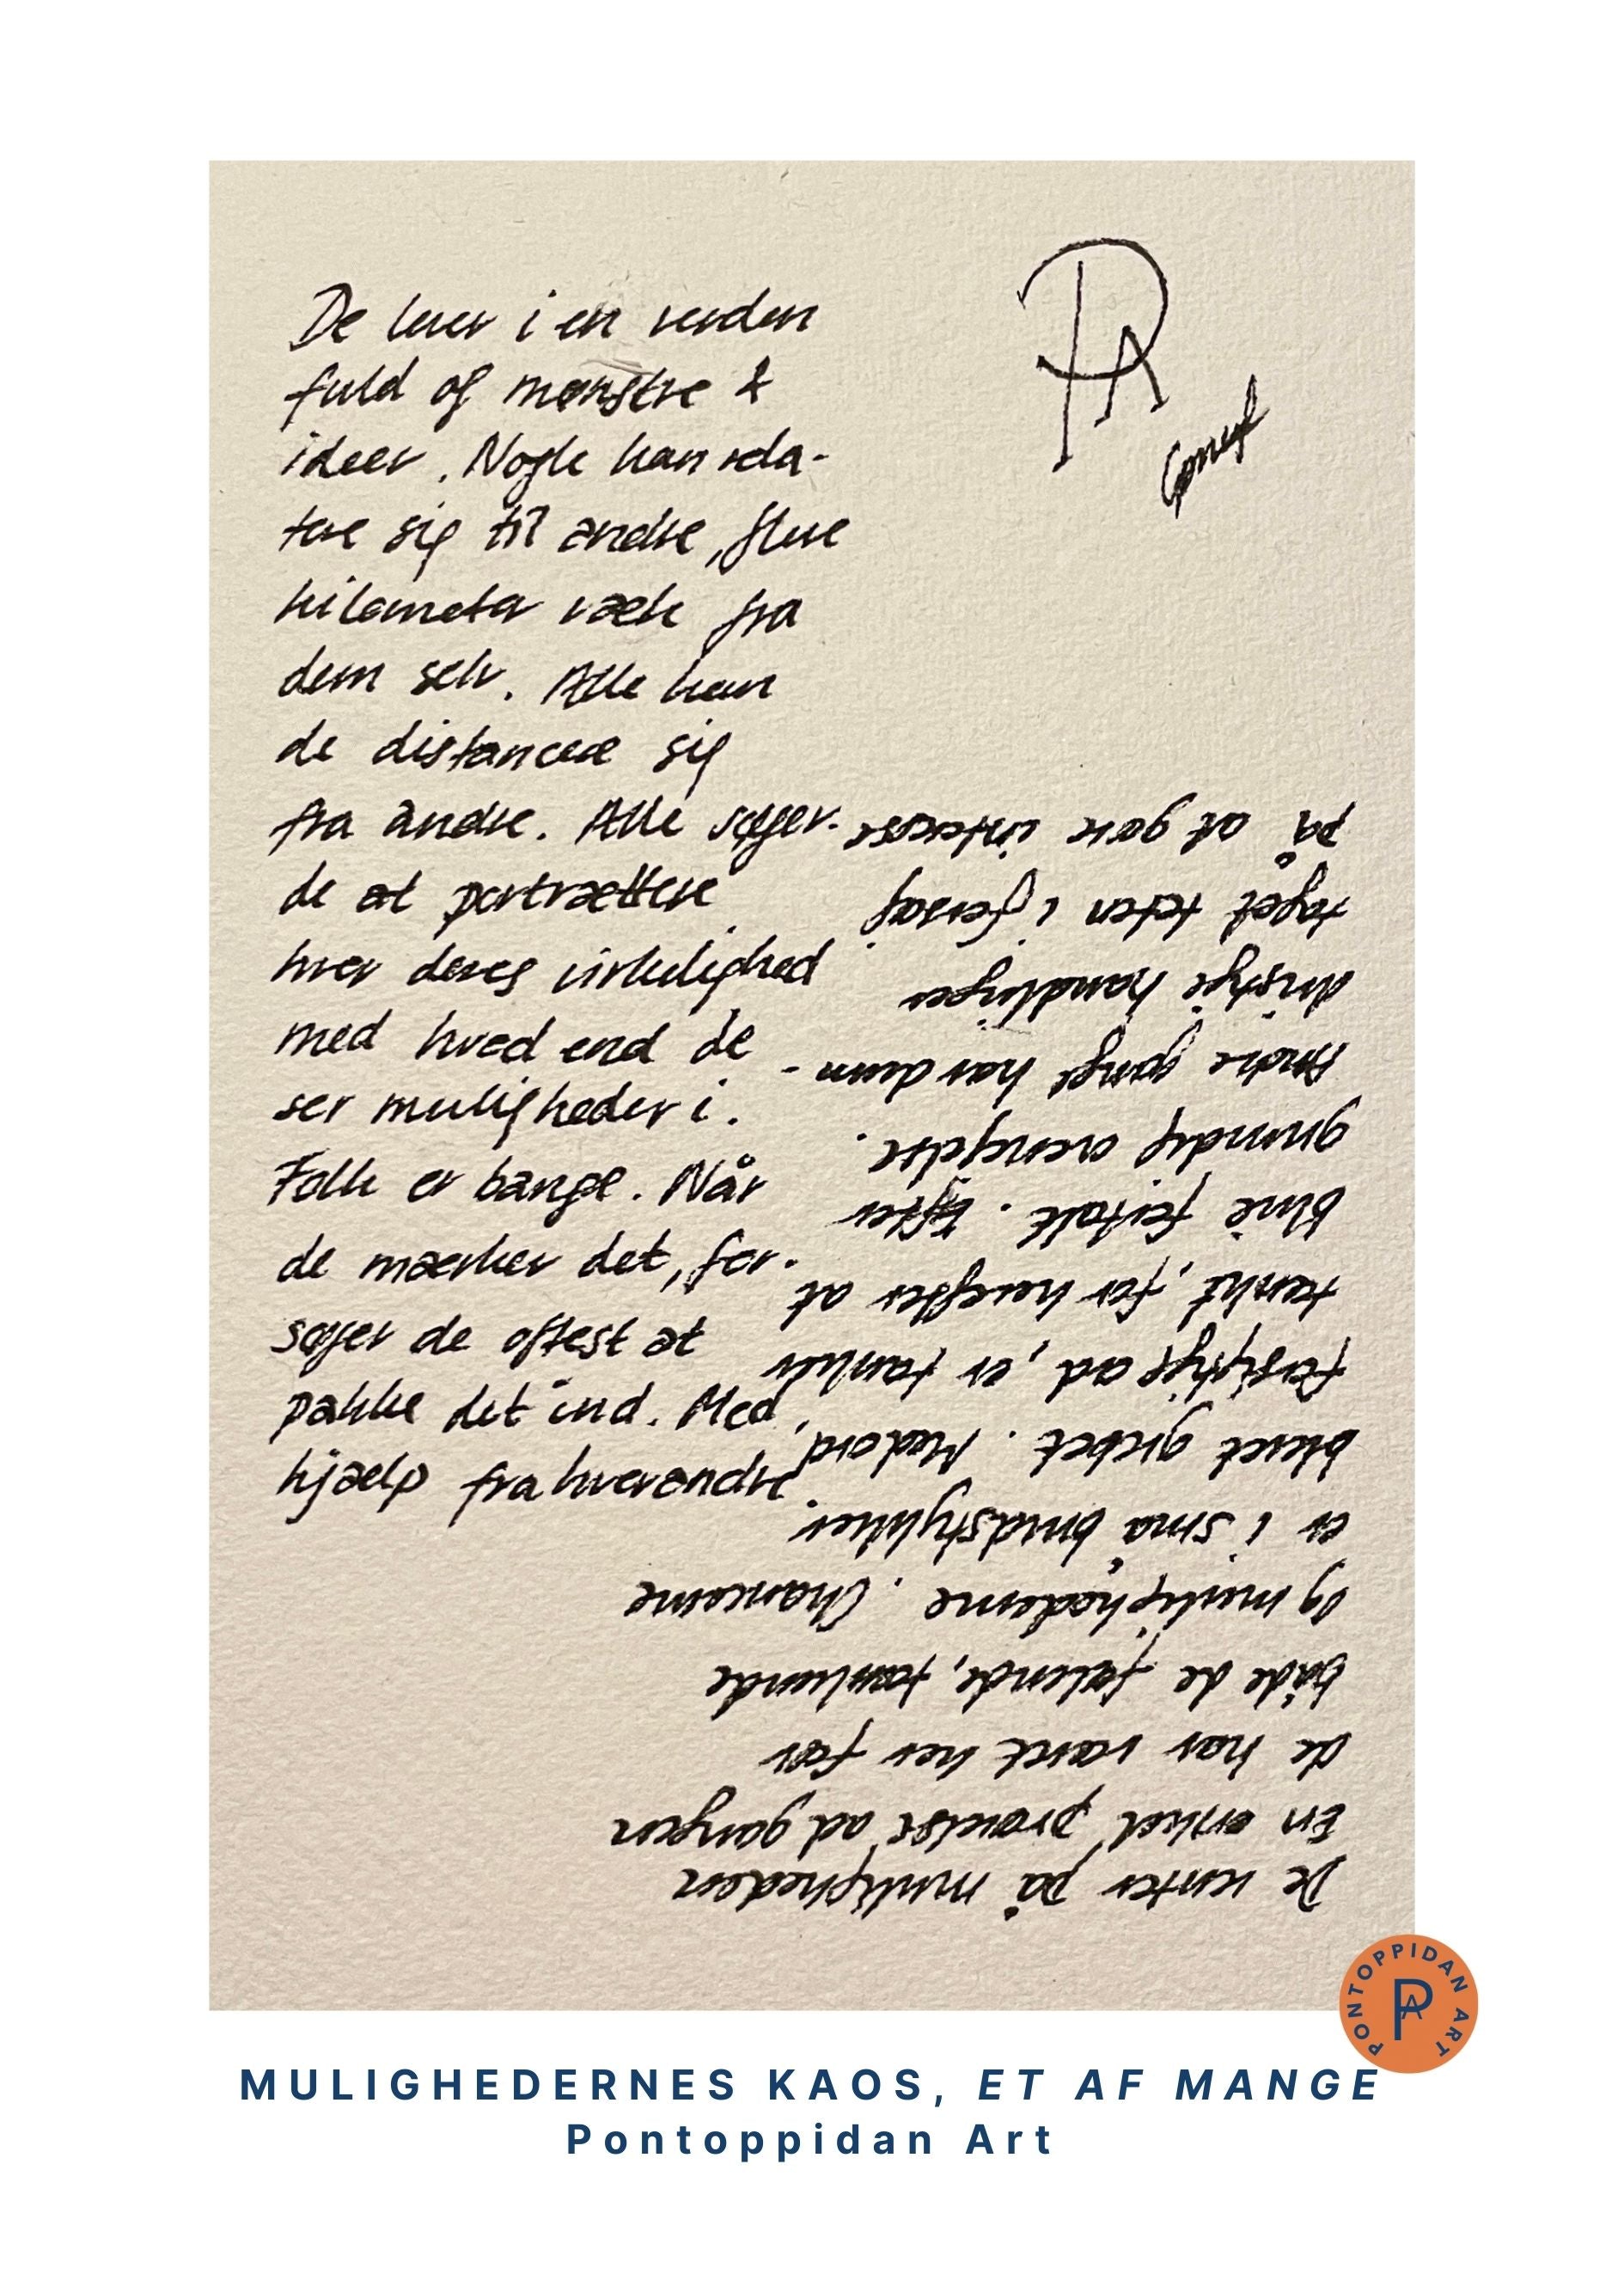 De lever i en verden
fuld af mønstre &
ideer. Nogle kan rela-
tere sig til andre, flere
kilometer væk fra
dem selv. Alle kan
de distancere sig
fra andre. Alle søger
de at portrættere
hver deres virkelighed
med hvad end de
ser muligheder i.
Folk er bange. Når
de mærker det, for-
søger de oftest at
pakke det ind. Med
hjælp fra hverandre.
De venter på muligheden
En enkel prøvelse ad gangen
de har været her før
både de følende, tænkende
og mulighederne. Chancerne
er i små brudstykker
blevet grebet. Med ord,
forsigtige ad, er tanker
tænkt, for herefter at
blive fortalt. Efter
grundig overvejelse.
Andre gange har dum-
dristige handlinger
taget teten i forsøg
på at gøre interesse
PA
PONTOPPIDAN ART
PA
MULIGHEDERNES KAOS, ET AF MANGE
Pontoppidan Art